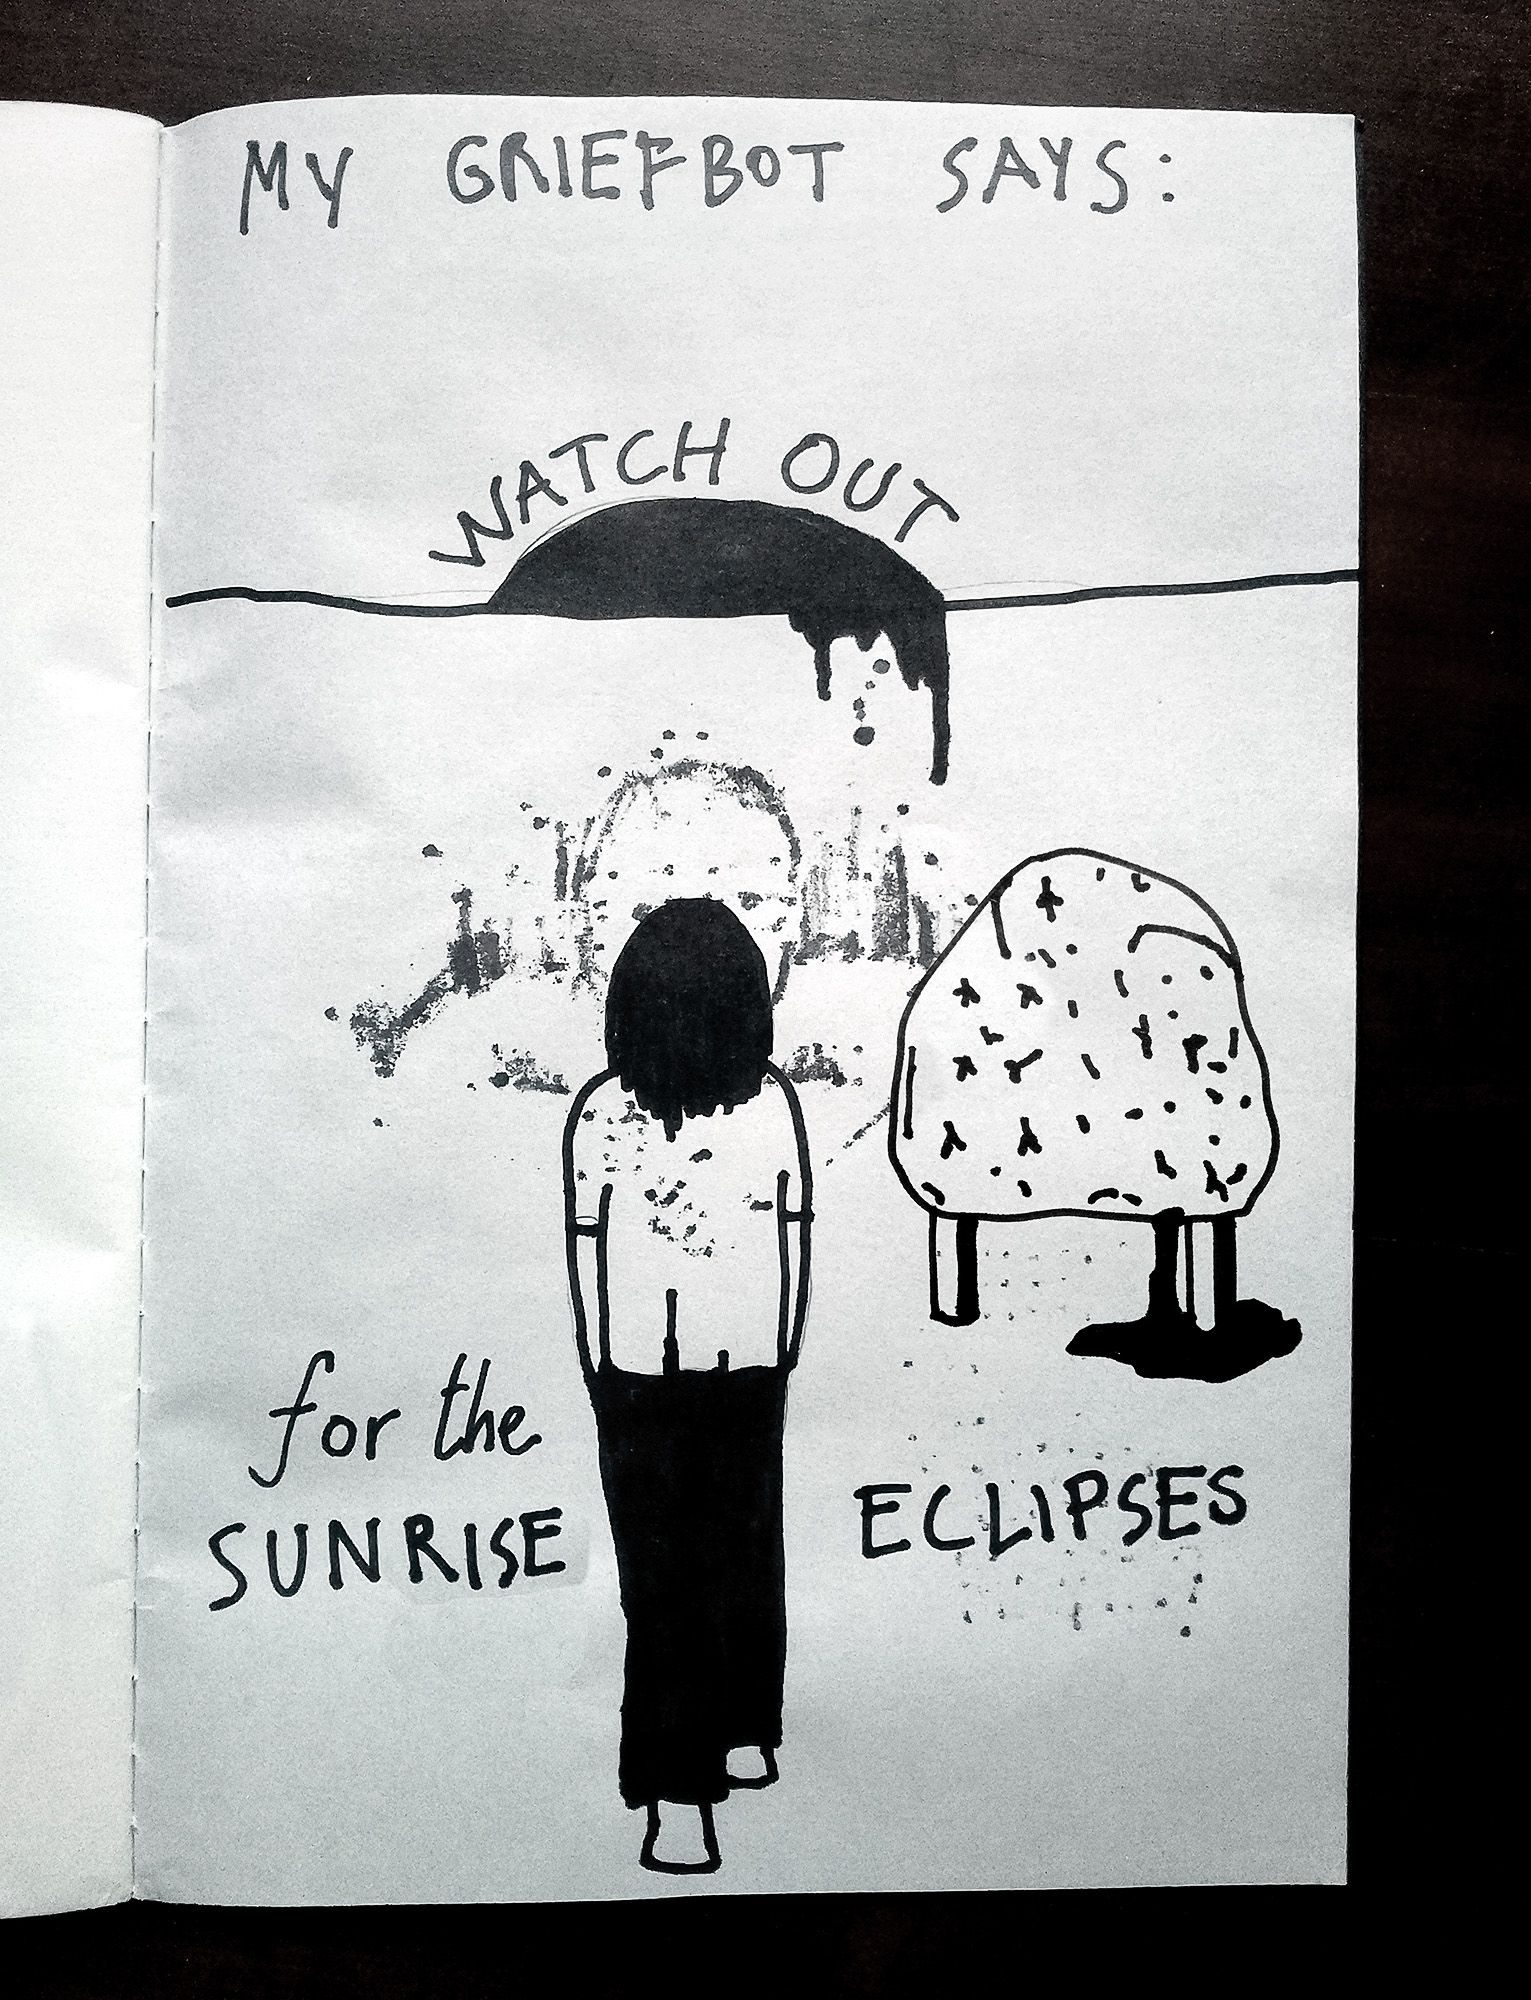 MY GRIEFBOT SAYS:
WATCH OUT
for the
SUNRISE
ECLIPSES